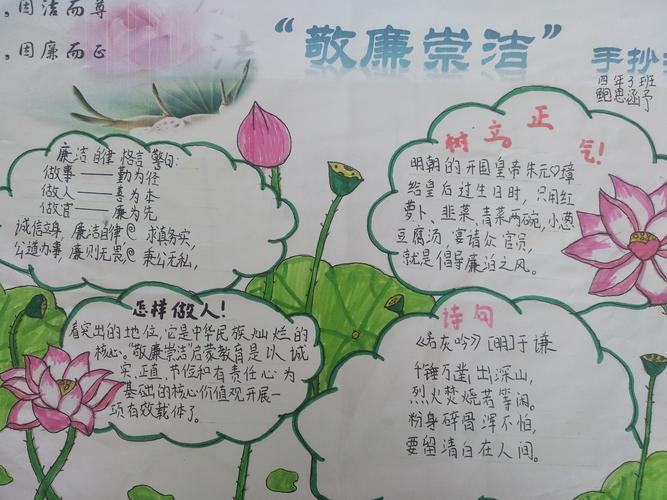 ，因洁而尊
，因廉而正
“敬廉崇洁” 手抄
四年3班
鲍思涵予
廉洁自律格言警句：
做事——勤为径
做人——善为本
做官——廉为先
诚信立身，廉洁自律@求真务实，
公道办事，廉则无畏@秉公无私，
树立正气！
明朝的开国皇帝朱元璋
给皇后过生日时，只用红
萝卜、韭菜、青菜两碗，小葱
豆腐汤，宴请众官员，
就是倡导廉洁之风。
怎样做人！
着突出的地位，它是中华民族灿烂的
核心。“敬廉崇洁”启蒙教育是以诚
实、正直、节俭和有责任心为
基础的核心价值观开展一
项有效载体了。
诗句
《石灰吟》[明]于谦
千锤万凿出深山，
烈火焚烧若等闲。
粉身碎骨浑不怕，
要留清白在人间。